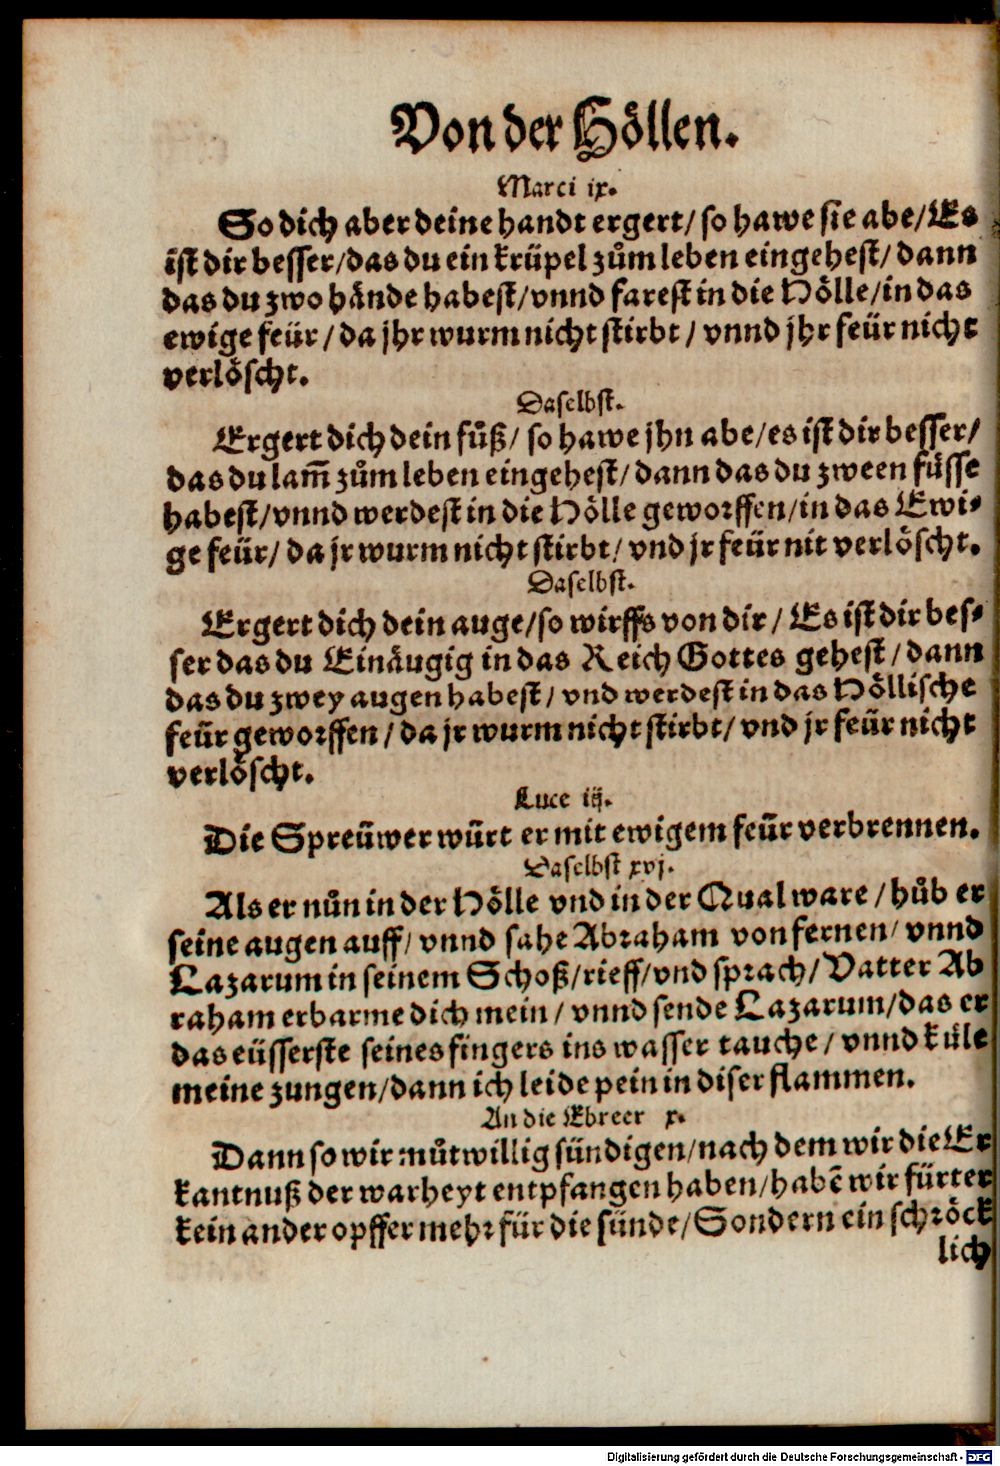 Von der Höllen.
Marci ix.
So dich aber deine handt ergert/ so hawe sie abe/ Es
ist dir besser/ das du ein krüpel zům leben eingehest/ dann
das du zwo hånde habest/ vnnd farest in die Hölle/ in das
ewige feür/ da jhr wurm nicht stirbt/ vnnd jhr feür nicht
verlöscht.
Daselbst.
Ergert dich dein fůß/ so hawe jhn abe/ es ist dir besser/
das du lam̄ zům leben eingehest/ dann das du zween füsse
habest/ vnnd werdest in die Hölle geworffen/ in das Ewi-
ge feür/ da jr wurm nicht stirbt/ vnd jr feür nit verlöscht.
Daselbst.
Ergert dich dein auge/ so wirffs von dir/ Es ist dir bes-
ser das du Einåugig in das Reich Gottes gehest/ dann
das du zwey augen habest/ vnd werdest in das Höllische
feür geworffen/ da jr wurm nicht stirbt/ vnd jr feür nicht
verlöscht.
Luce iij.
Die Spreüwer würt er mit ewigem feür verbrennen.
Daselbst xvj.
Als er nůn in der Hölle vnd in der Qual ware/ hůb er
seine augen auff/ vnnd sahe Abraham von fernen/ vnnd
Lazarum in seinem Schoß/ rieff/ vnd sprach/ Vatter Ab
raham erbarme dich mein/ vnnd sende Lazarum/ das er
das eüsserste seines fingers ins wasser tauche/ vnnd küle
meine zungen/ dann ich leide pein in diser flammen.
An die Ebreer x.
Dann so wir můtwillig sündigen/ nach dem wir die Er
kantnuß der warheyt entpfangen haben/ habē wir fürter
kein ander opffer mehr für die sünde/ Sondern ein schröck
lich
Digitalisierung gefördert durch die Deutsche Forschungsgemeinschaft - DFG